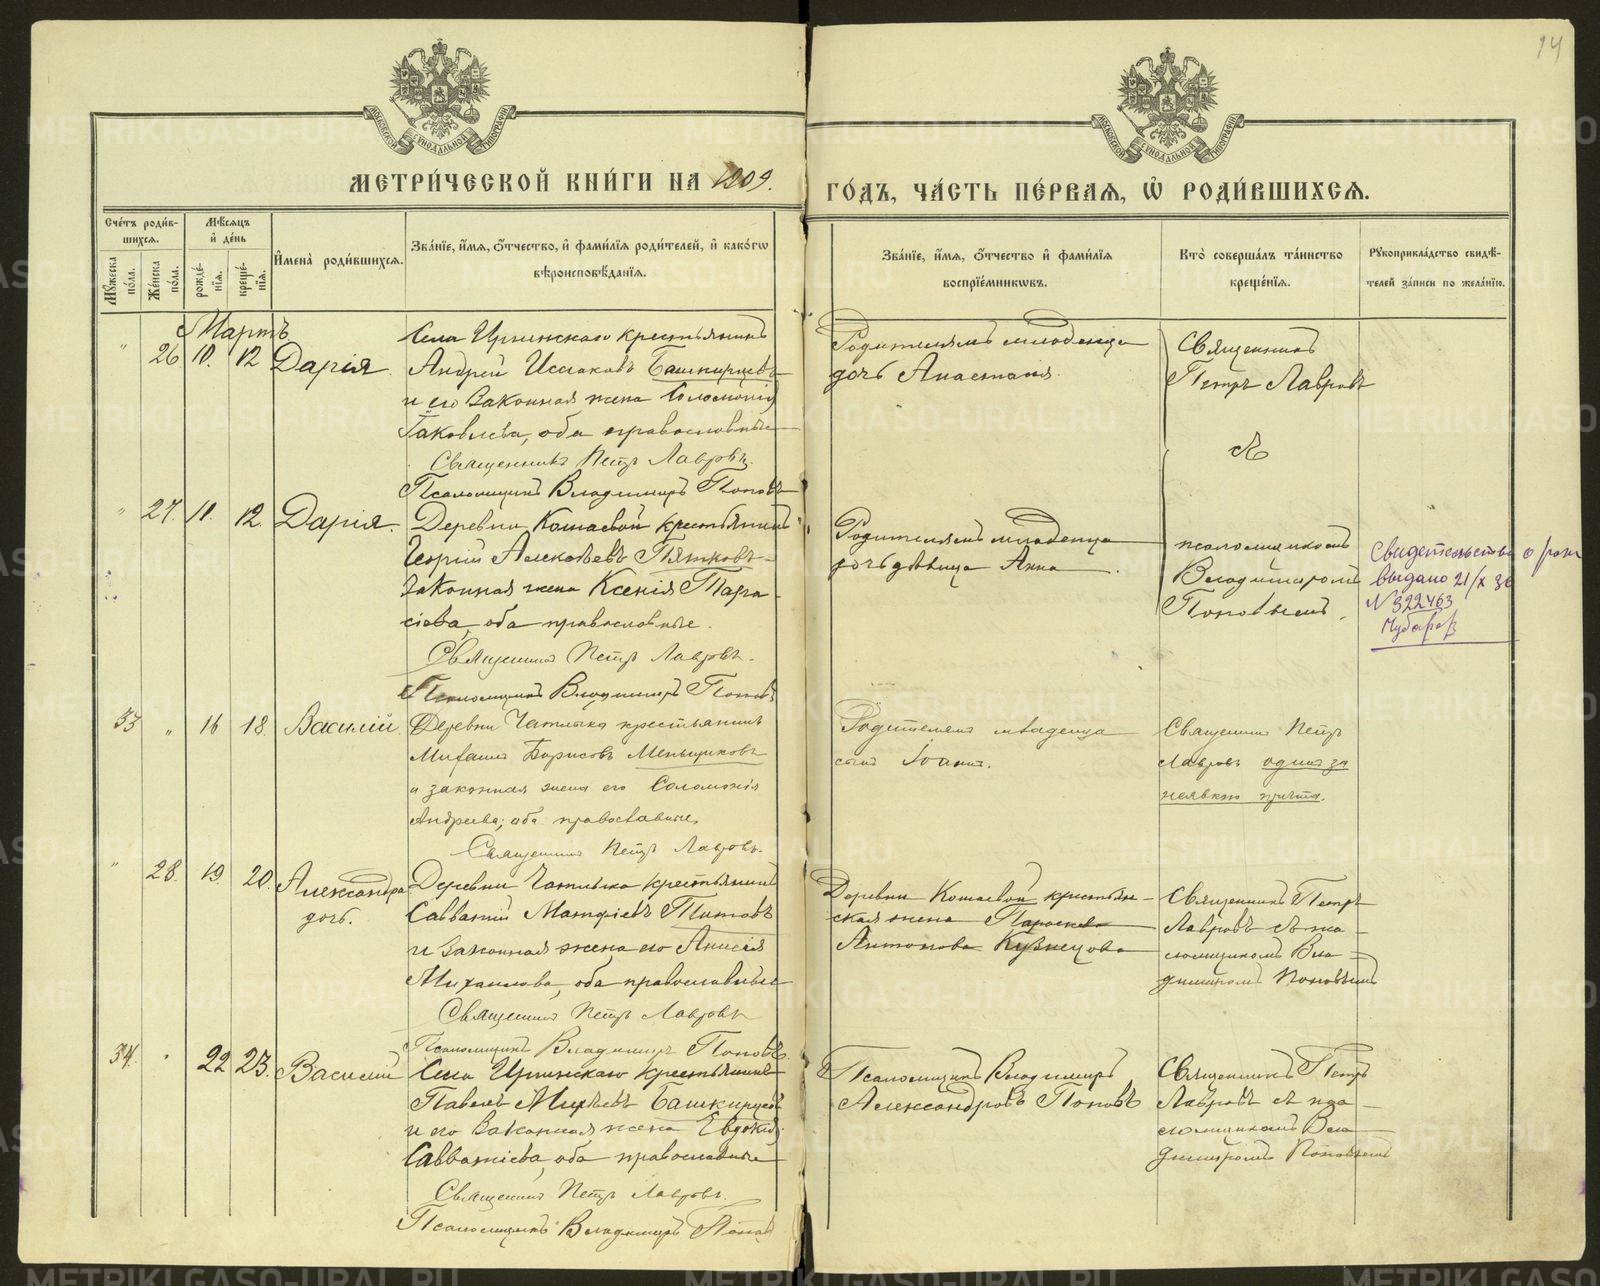 14
МОСКОВСКОЙ СѴНОДАЛЬНОЙ ТИПОГРАФІИ
МОСКОВСКОЙ СѴНОДАЛЬНОЙ ТИПОГРАФІИ
МЕТРИ́ЧЕСКОЙ КНИ́ГИ НА 1909. ГО́ДЪ, ЧА́СТЬ ПЕ́РВАЯ, Ѽ РОДИ́ВШИХСЯ.
Сче́тъ роди́в-
шихся.
Мѣ́сяцъ
и҆ де́нь
Му́жеска по́ла.
Же́нска по́ла.
рожде́-
нїя.
креще́-
нїя.
И҆мена̀ роди́вшихся.
Зва́нїе, и҆́мя, ѻ҆́тчество, и҆ фами́лїя роди́телей, и҆ како́гѡ
вѣроисповѣ́данїя.
Зва́нїе, и҆́мя, ѻ҆́тчество и҆ фами́лїя
воспрїе́мникѡвъ.
Кто̀ соверша́лъ та́инство
креще́нїя.
Рꙋкоприкла́дство свидѣ́-
телей за́писи по жела́нїю.
Мартъ
" 26 10. 12 Дарія.
Села Иргинскаго крестьянинъ
Андрей Исааковъ Башкирцевъ
и его законная жена Соломонія
Іаковлева, оба православные
Священникъ Петръ Лавровъ.
Псаломщикъ Владимиръ Поповъ
Родителямъ младенца
дочь Анастасія.
Священникъ
Петръ Лавровъ
съ
псаломщикомъ
Владимиромъ
Поповымъ.
" 27. 11. 12. Дарія.
Деревни Кошаевой крестьянинъ
Георгій Алексѣевъ Пятковъ
законная жена Ксенія Тара-
сіева, оба православные.
Священникъ Петръ Лавровъ.
Псаломщикъ Владимиръ Поповъ
Родителямъ младенца
дочь дѣвица Анна.
Свидетельство о рож
выдано 21/X 36
N 322463
33 " 16 18. Василій.
Деревни Чатлыка крестьянинъ
Михаилъ Борисовъ Меньщиковъ
и законная жена его Соломонія
Андреева; оба православные.
Священникъ Петръ Лавровъ.
Родителямъ младенца
сынъ Іоаннъ.
Священникъ Петръ
Лавровъ одинъ за
неявкою причта.
" 28. 19. 20. Александра
дочь.
Деревни Чатлыка крестьянинъ
Савватій Матфіевъ Титовъ
и законная жена его Анисія
Михаилова, оба православные
Священникъ Петръ Лавровъ
Псаломщикъ Владимиръ Поповъ.
Деревни Кошаевой крестьян-
ская жена Параскева
Антонова Кузнецова
Священникъ Петръ
Лавровъ съ пса-
ломщикомъ Вла-
димиромъ Поповымъ
34. " 22 23. Василій
Села Иргинскаго крестьянинъ
Павелъ Михѣевъ Башкирцевъ
и его законная жена Евдокія
Савватіева, оба православные
Священникъ Петръ Лавровъ.
Псаломщикъ Владимиръ Поповъ
Псаломщикъ Владимиръ
Александровъ Поповъ
Священникъ Петръ
Лавровъ съ пса-
ломщикомъ Вла-
димиромъ Поповымъ
METRIKI.GASO-URAL.RU